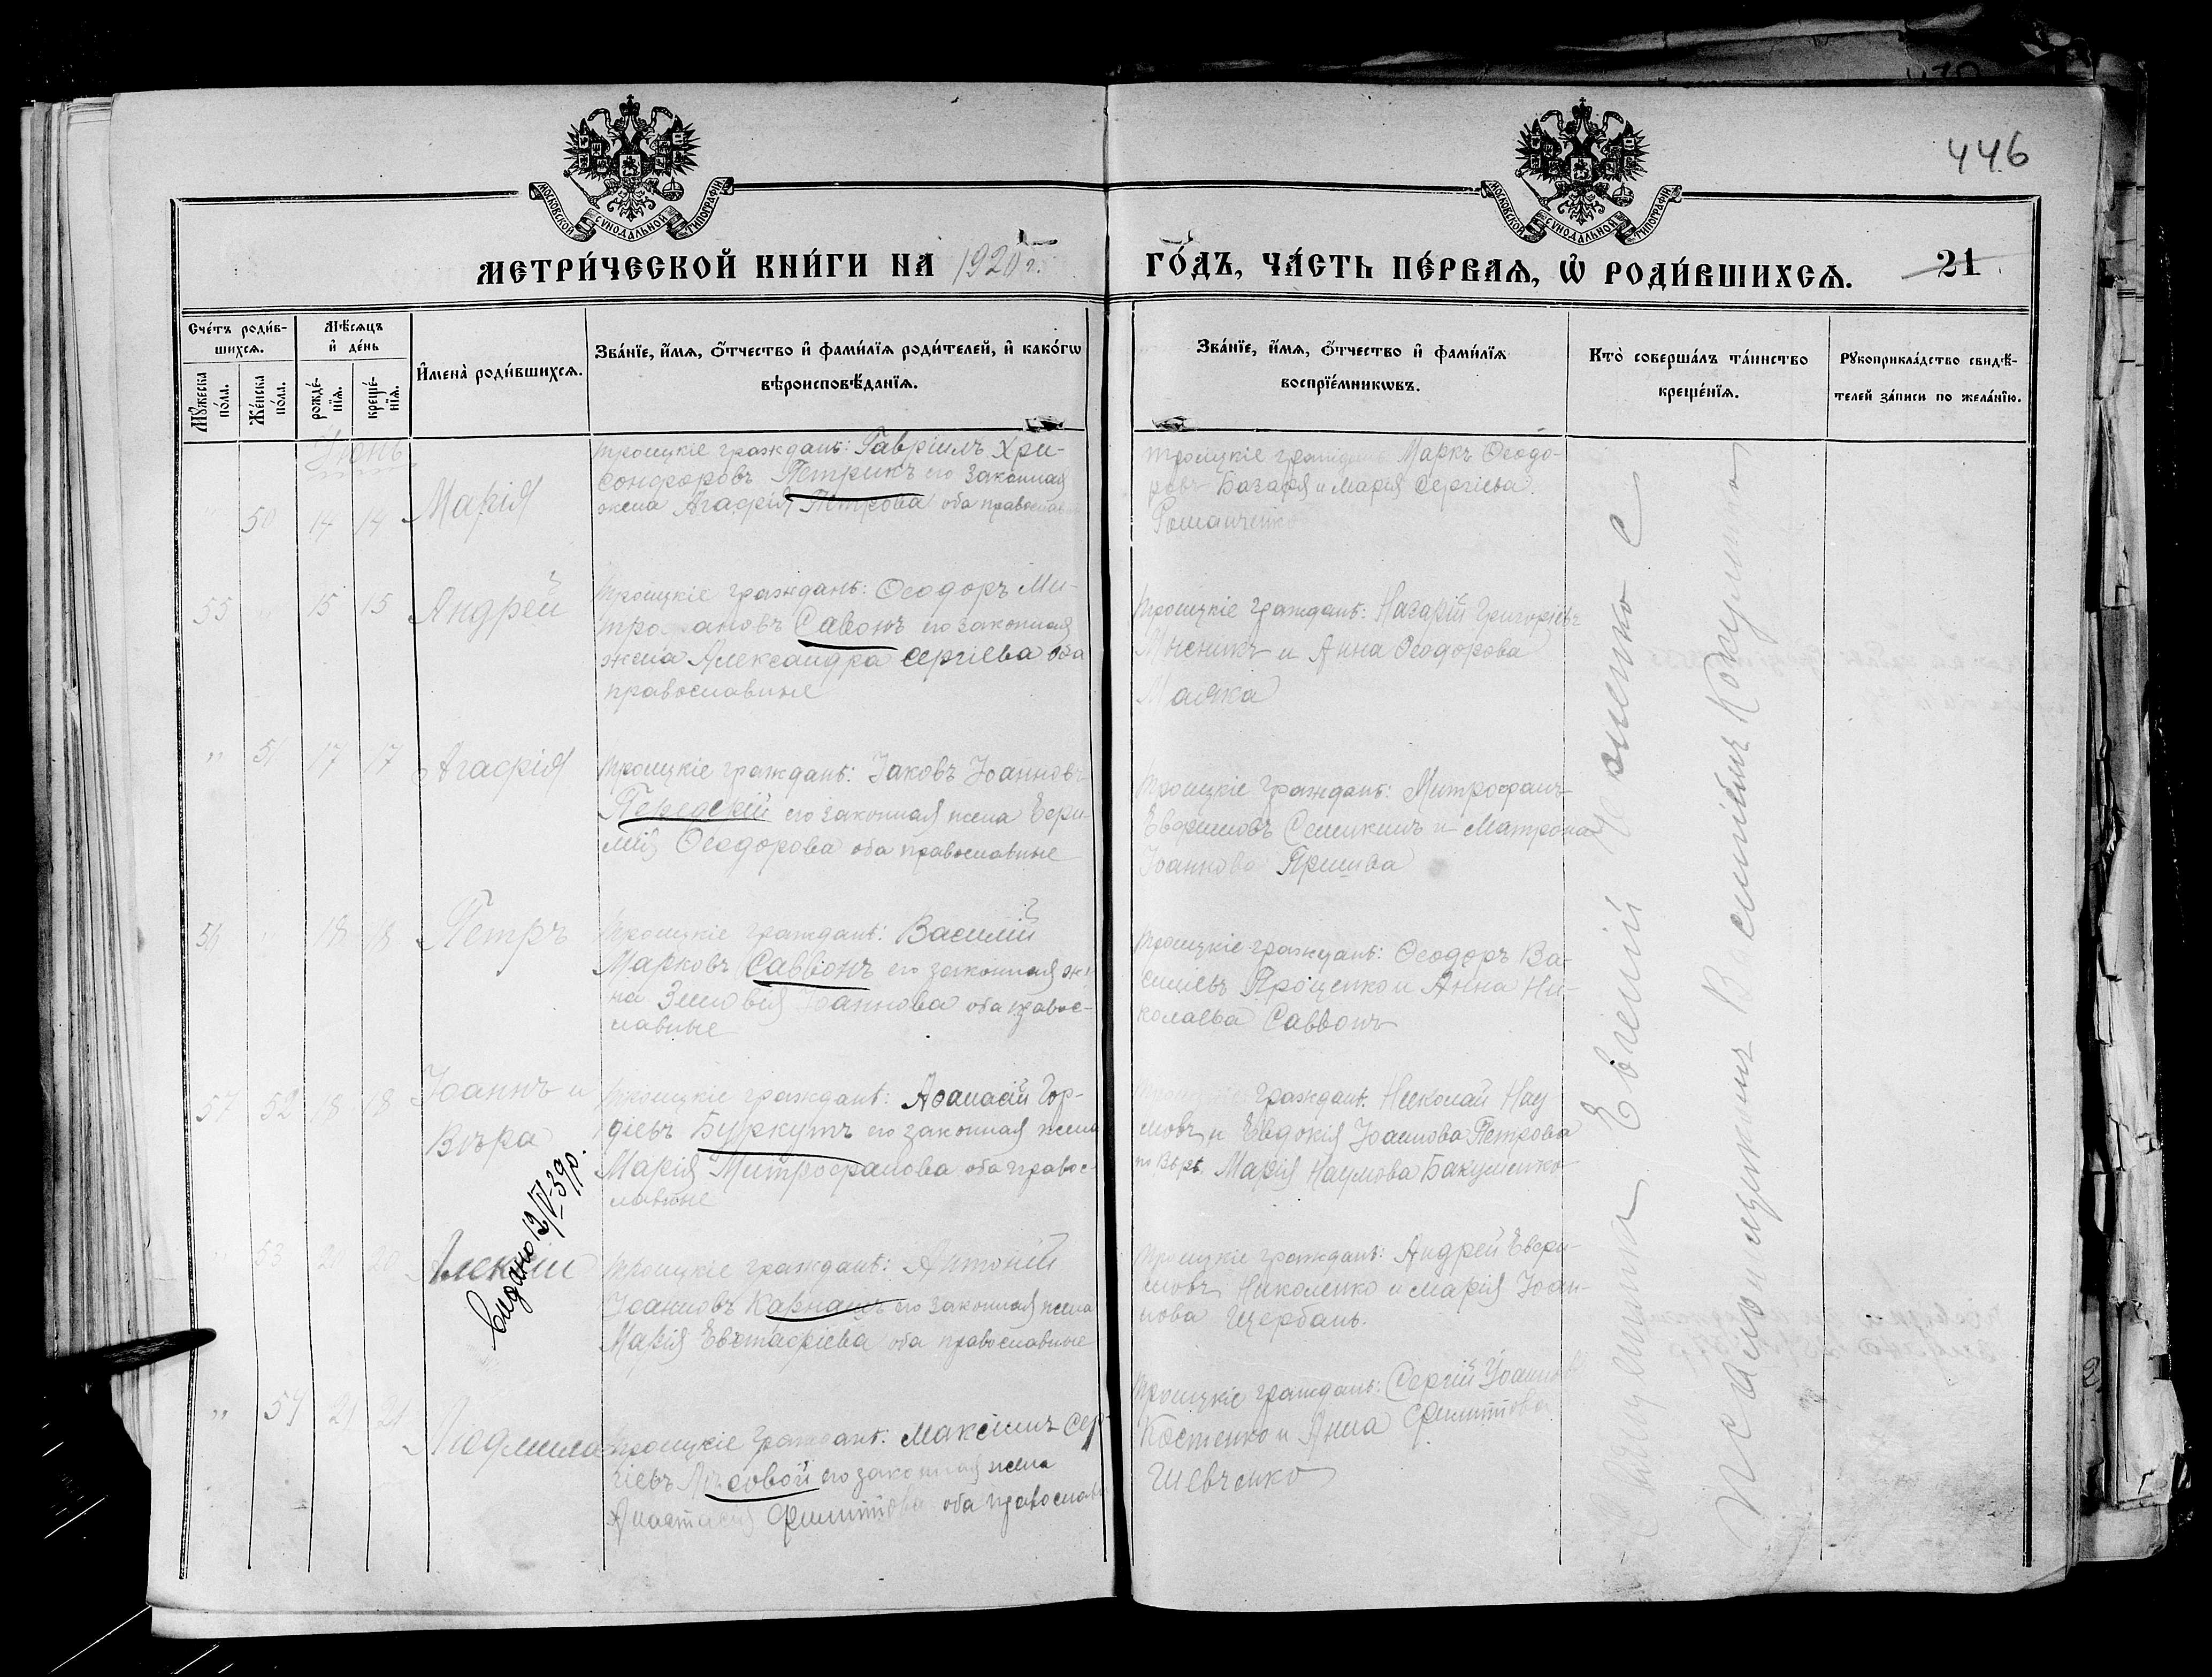 446
МОСКОВСКОЙ СѴНОДАЛЬНОЙ ТИПОГРАФІИ
МОСКОВСКОЙ СѴНОДАЛЬНОЙ ТИПОГРАФІИ
МЕТРИ́ЧЕСКОЙ КНИ́ГИ НА 1920 г.
ГО́ДЪ, ЧА́СТЬ ПЕ́РВАѦ, Ѡ҆ РОДИ́ВШИХСѦ. 21
Сче́тъ роди́в-
шихсѧ.
Мѣ́сѧцъ
и҆ де́нь
Мꙋ́жеска
по́ла.
Же́нска
по́ла.
рожде́-
нїѧ.
креще́-
нїѧ.
И҆мена̀ роди́вшихсѧ.
Зва́нїе, и҆́мѧ, ѻ҆́тчество и҆ фами́лїѧ роди́телей, и҆ како́гѡ
вѣроисповѣ́данїѧ.
Зва́нїе, и҆́мѧ, ѻ҆́тчество и҆ фами́лїѧ
воспрїе́мникѡвъ.
Кто̀ соверша́лъ та́инство
креще́нїѧ.
Рꙋкоприкла́дство свидѣ́-
телей за́писи по жела́нїю.
Іюнь
50 14 14 Марія
троицкіе гражданѣ: Гавріилъ Хри-
сонфоровъ Петрикъ его законная
жена Агафія Петрова оба православ
троицкіе Маркъ Ѳеодо-
ровъ Базафя и Марія Сергіева
Романченко
55 " 15 15 Андрей
троицкіе гражданѣ: Ѳеодоръ Ми-
трофановъ Савонъ его законная
жена Александра Сергіева оба
православные
троицкіе гражданѣ: Назарій Григорьевъ
Мисникъ и Анна Ѳеодорова
Маяка
" 51 17 17 Агафія
троицкіе гражданѣ: Іаковъ Іоанновъ
его законная жена Евфи-
мія Ѳеодорова оба православные
троицкіе гражданѣ: Митрофанъ
Евфимовъ Семикинъ и Матрона
Іоаннова
56 " 18 18 Петръ
троицкіе гражданѣ: Василій
Марковъ Саввонъ его законная же-
на Зиновія Іоаннова оба правос-
лавные
троицкіе гражданѣ: Ѳеодоръ Ва-
силіевъ Ярощенко и Анна Ни-
колаева Саввонъ
57 52 18 18 Іоаннъ и
Вѣра
троицкіе гражданѣ: Аѳанасій Гор-
діевъ Буркутъ его законная жена
Марія Митрофанова оба правос-
лавные
троицкіе гражданѣ: Николай Нау
мовъ и Евдокія Іоаннова Петрова
по Вѣрѣ Марія Наумова Бакуменко
Видано 13/IV-39р.
" 53 21 20
троицкіе гражданѣ: Антоній
Іоанновъ Карнаухъ его законная жена
Марія Евстафіева оба православные
троицкіе гражданѣ: Андрей Евфи-
мовъ Николенко и Марія Іоан-
нова Щербань.
" 54 21 21 Людмила
троицкіе гражданѣ: Максимъ Сер-
гіевъ Лѣсовой его законная жена
Анастасія Филиппова оба православн
троицкіе гражданѣ: Сергій Іоаннов
Костенко и Анна Филиппова
Шевченко
Священникъ Евгеній
Псаломщикъ